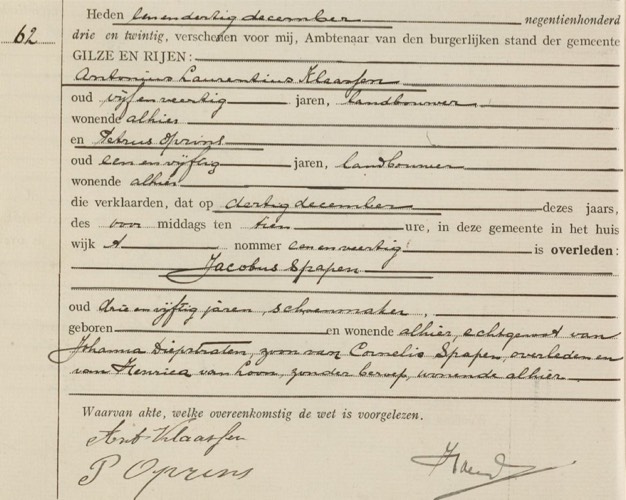 Heden een en dertig december negentienhonderd
62 drie en twintig, verschenen voor mij, Ambtenaar van den burgerlijken stand der gemeente
GILZE EN RIJEN:
Antonius Laurentius Klaassen
oud vijf en veertig jaren, landbouwer
wonende alhier
en Petrus Oprins
oud een en vijftig jaren, landbouwer
wonende alhier
die verklaarden, dat op dertig december dezes jaars,
des voor middags ten tien ure, in deze gemeente in het huis
wijk A nommer een en veertig is overleden:
Jacobus Spapen
oud drie en vijftig jaren, schoenmaker,
geboren en wonende alhier, echtgenoot van
Johanna Diepstraten, zoon van Cornelis Spapen, overleden en
van Henrica van Loon, zonder beroep, wonende alhier
Waarvan akte, welke overeenkomstig de wet is voorgelezen.
Ant Klaassen
P Oprins